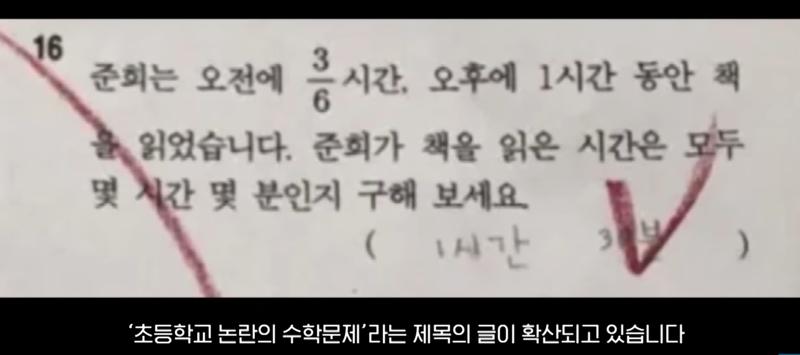 16
준희는 오전에 3/6시간, 오후에 1시간 동안 책
을 읽었습니다. 준희가 책을 읽은 시간은 모두
몇 시간 몇 분인지 구해 보세요.
( 1시간 30분 )
'초등학교 논란의 수학문제'라는 제목의 글이 확산되고 있습니다